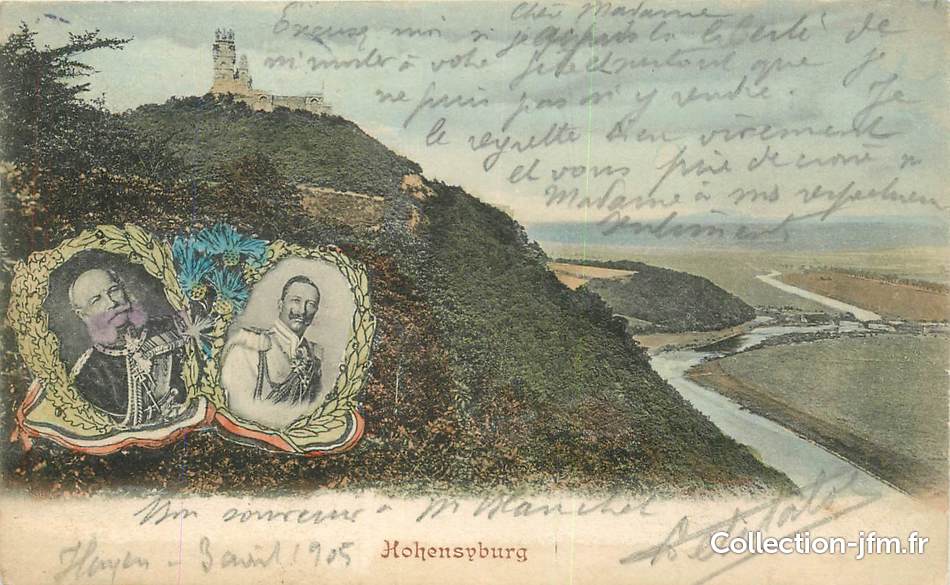 Chèr Madame
Excusez moi si je prends la liberté de
à votre que je
ne puis pas m'y rendre. Je
le regrette bien vivement
et vous prie de croire
Madame à mes respectueux
sentiments
Mon souvenir à Mr Blanchet
Hohensyburg
Hagen - 3 avril 1905
Collection-jfm.fr